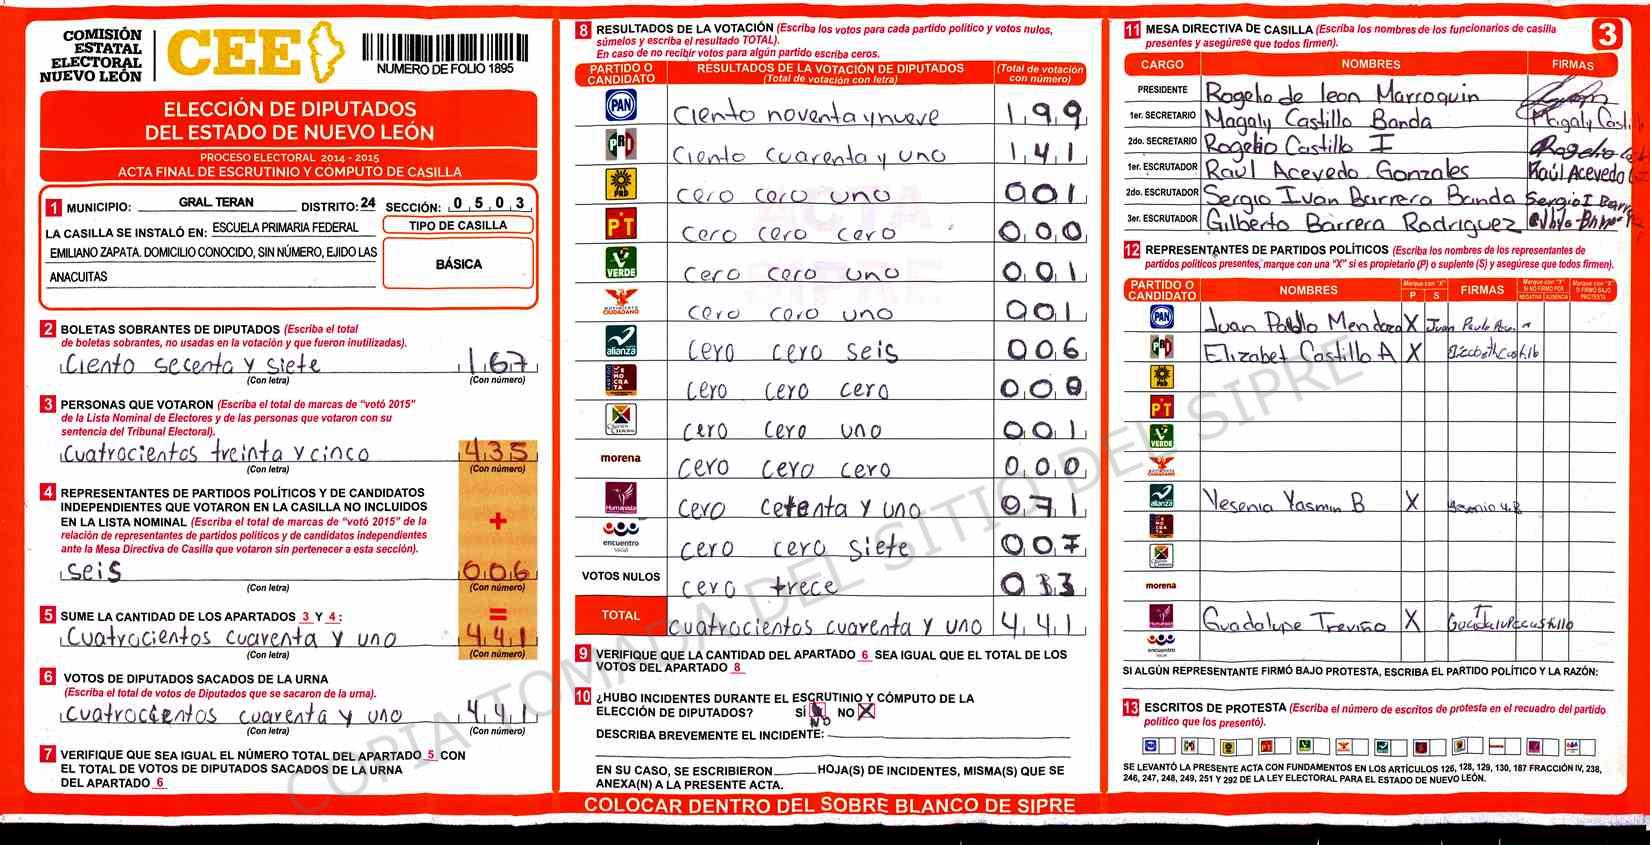 COMISIÓN
ESTATAL
ELECTORAL
NUEVO LEÓN
CEE
NUMERO DE FOLIO 1895
ELECCIÓN DE DIPUTADOS
DEL ESTADO DE NUEVO LEÓN
PROCESO ELECTORAL 2014 - 2015
ACTA FINAL DE ESCRUTINIO Y CÓMPUTO DE CASILLA
1 MUNICIPIO: GRAL. TERAN DISTRITO: 24 SECCIÓN: 0 5 0 3
LA CASILLA SE INSTALÓ EN: ESCUELA PRIMARIA FEDERAL
EMILIANO ZAPATA. DOMICILIO CONOCIDO, SIN NÚMERO, EJIDO LAS
ANACUITAS
TIPO DE CASILLA
BÁSICA
2 BOLETAS SOBRANTES DE DIPUTADOS (Escriba el total
de boletas sobrantes, no usadas en la votación y que fueron inutilizadas).
Ciento secenta y siete 167
(Con letra) (Con número)
3 PERSONAS QUE VOTARON (Escriba el total de marcas de "votó 2015"
de la Lista Nominal de Electores y de las personas que votaron con su
sentencia del Tribunal Electoral).
Cuatrocientos treinta y cinco 435
(Con letra) (Con número)
4 REPRESENTANTES DE PARTIDOS POLÍTICOS Y DE CANDIDATOS
INDEPENDIENTES QUE VOTARON EN LA CASILLA NO INCLUIDOS
EN LA LISTA NOMINAL (Escriba el total de marcas de "votó 2015" de la
relación de representantes de partidos políticos y de candidatos independientes
ante la Mesa Directiva de Casilla que votaron sin pertenecer a esta sección).
+
seis 006
(Con letra) (Con número)
=
5 SUME LA CANTIDAD DE LOS APARTADOS 3 Y 4:
Cuatrocientos cuarenta y uno 441
(Con letra) (Con número)
6 VOTOS DE DIPUTADOS SACADOS DE LA URNA
(Escriba el total de votos de Diputados que se sacaron de la urna).
Cuatrocientos cuarenta y uno 441
(Con letra) (Con número)
7 VERIFIQUE QUE SEA IGUAL EL NÚMERO TOTAL DEL APARTADO 5 CON
EL TOTAL DE VOTOS DE DIPUTADOS SACADOS DE LA URNA
DEL APARTADO 6
8 RESULTADOS DE LA VOTACIÓN (Escriba los votos para cada partido político y votos nulos,
súmelos y escriba el resultado TOTAL).
En caso de no recibir votos para algún partido escriba ceros.
PARTIDO O CANDIDATO RESULTADOS DE LA VOTACIÓN DE DIPUTADOS (Total de votación con letra) (Total de votación con número)
PAN Ciento noventa y nueve 199
PRD Ciento cuarenta y uno 141
PRD cero cero uno 001
PT cero cero cero 000
VERDE cero cero uno 001
MOVIMIENTO CIUDADANO cero cero uno 001
alianza cero cero seis 006
DEMOCRATA cero cero cero 000
cero cero uno 001
morena cero cero cero 000
Humanista cero cetenta y uno 071
encuentro social cero cero siete 007
VOTOS NULOS cero trece 013
TOTAL cuatrocientos cuarenta y uno 441
9 VERIFIQUE QUE LA CANTIDAD DEL APARTADO 6 SEA IGUAL QUE EL TOTAL DE LOS
VOTOS DEL APARTADO 8
10 ¿HUBO INCIDENTES DURANTE EL ESCRUTINIO Y CÓMPUTO DE LA
ELECCIÓN DE DIPUTADOS? SÍ NO X
NO
DESCRIBA BREVEMENTE EL INCIDENTE:
EN SU CASO, SE ESCRIBIERON HOJA(S) DE INCIDENTES, MISMA(S) QUE SE
ANEXA(N) A LA PRESENTE ACTA.
COLOCAR DENTRO DEL SOBRE BLANCO DE SIPRE
3
11 MESA DIRECTIVA DE CASILLA (Escriba los nombres de los funcionarios de casilla
presentes y asegúrese que todos firmen).
CARGO NOMBRES FIRMAS
PRESIDENTE Rogelio de leon Marroquin
1er. SECRETARIO Magaly Castillo Banda Magaly Casti
2do. SECRETARIO Rogelio Castillo I Rogelio
1er. ESCRUTADOR Raúl Acevedo Gonzales Raúl Acevedo
2do. ESCRUTADOR Sergio Ivan Barrera Banda Sergio I
3er. ESCRUTADOR Gilberto Barrera Rodriguez
12 REPRESENTANTES DE PARTIDOS POLÍTICOS (Escriba los nombres de los representantes de
partidos políticos presentes, marque con una "X" si es propietario (P) o suplente (S) y asegúrese que todos firmen).
PARTIDO O CANDIDATO NOMBRES Marque con "X" P S FIRMAS Marque con "X" SI NO FIRMÓ POR NEGATIVA AUSENCIA Marque con "X" SI FIRMÓ BAJO PROTESTA
PAN Juan Pablo Mendoza X Juan Pablo
PRD Elizabet Castillo A X Elizabeth Castillo
PRD
PT
VERDE
alianza Yesenia Yasmin B X Yesenia Y.B
morena
Humanista Guadalupe Treviño X Guadalupe Castillo
encuentro social
SI ALGÚN REPRESENTANTE FIRMÓ BAJO PROTESTA, ESCRIBA EL PARTIDO POLÍTICO Y LA RAZÓN:
13 ESCRITOS DE PROTESTA (Escriba el número de escritos de protesta en el recuadro del partido
político que los presentó).
SE LEVANTÓ LA PRESENTE ACTA CON FUNDAMENTOS EN LOS ARTÍCULOS 126, 128, 129, 130, 187 FRACCIÓN IV, 238,
246, 247, 248, 249, 251 Y 292 DE LA LEY ELECTORAL PARA EL ESTADO DE NUEVO LEÓN.
ACTA
SIPRE
COPIA TOMADA DEL SITIO DEL SIPRE